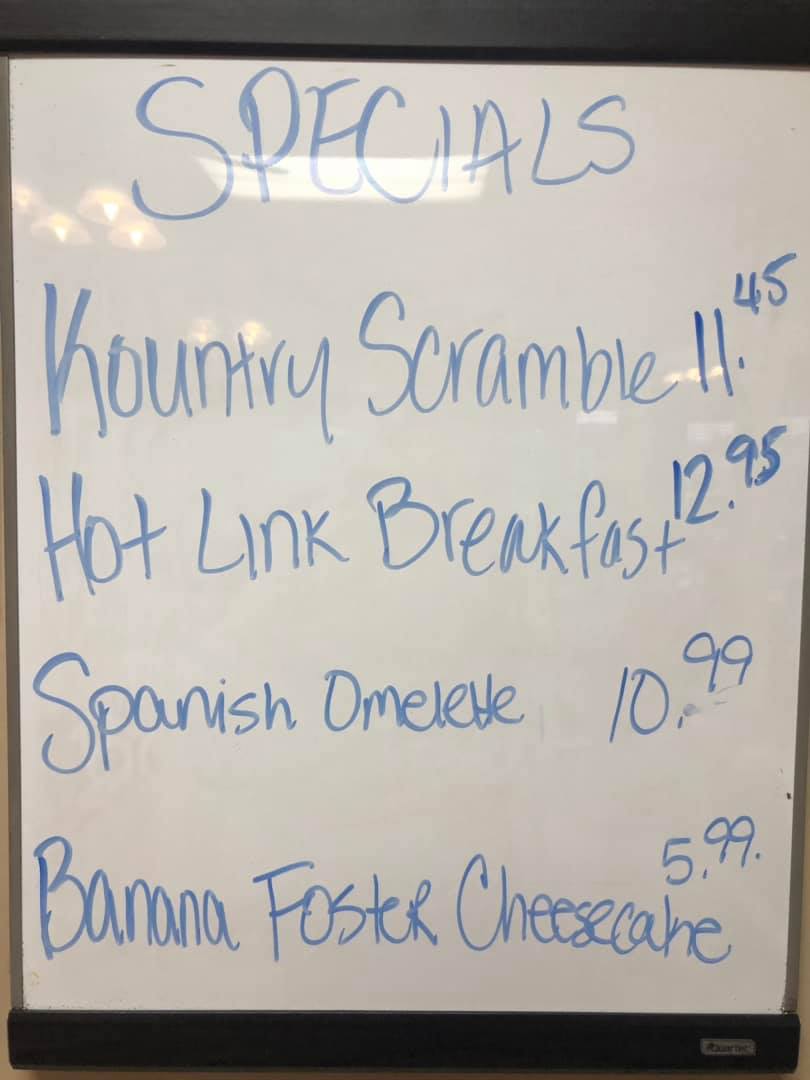 SPECIALS
Kountry Scramble 11.45
Hot Link Breakfast 12.95
Spanish Omelette 10.99
Banana Foster Cheesecake 5.99.
Quartet